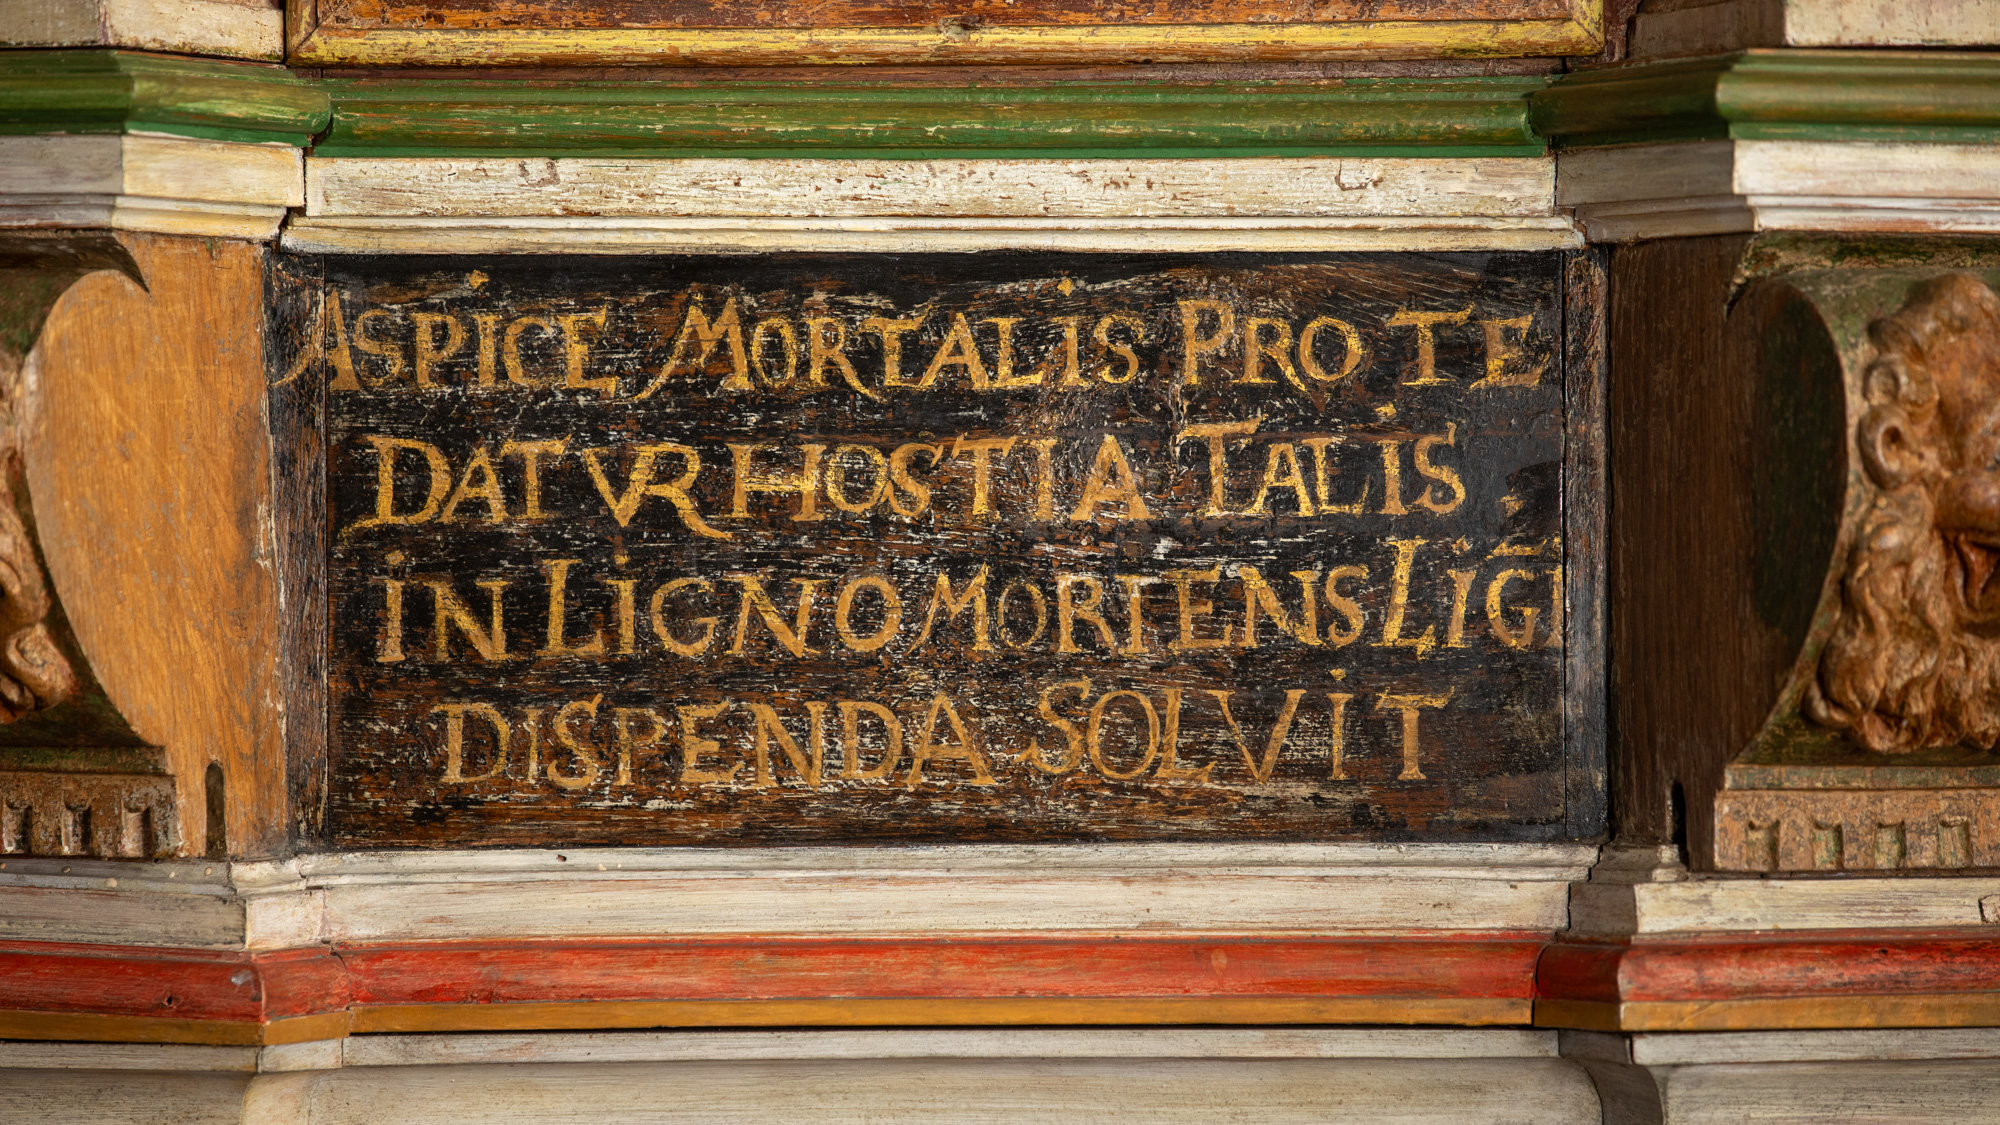 ASPICE MORTALIS PRO TE
DATVR HOSTIA TALIS.
IN LIGNO MORTENS LIGI
DISPENDA SOLVIT